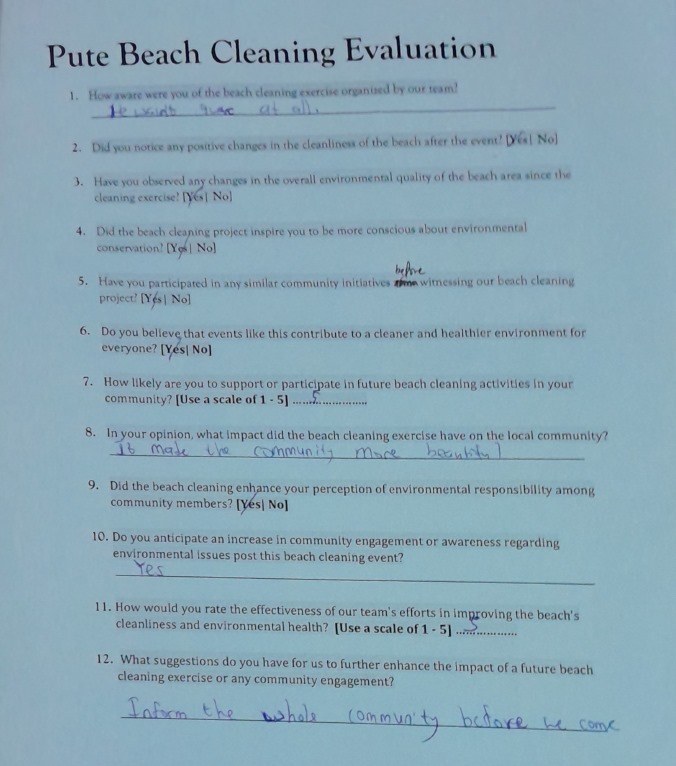 Pute Beach Cleaning Evaluation
1. How aware were you of the beach cleaning exercise organized by our team?
at all.
2. Did you notice any positive changes in the cleanliness of the beach after the event? [Yes| No]
3. Have you observed any changes in the overall environmental quality of the beach area since the
cleaning exercise? [Yes| No]
4. Did the beach cleaning project inspire you to be more conscious about environmental
conservation? [Yes| No]
before
5. Have you participated in any similar community initiatives witnessing our beach cleaning
project? [Yes| No]
6. Do you believe that events like this contribute to a cleaner and healthier environment for
everyone? [Yes| No]
7. How likely are you to support or participate in future beach cleaning activities in your
community? [Use a scale of 1 - 5] ......5..............
8. In your opinion, what impact did the beach cleaning exercise have on the local community?
It made the community more beautiful
9. Did the beach cleaning enhance your perception of environmental responsibility among
community members? [Yes| No]
10. Do you anticipate an increase in community engagement or awareness regarding
environmental issues post this beach cleaning event?
Yes
11. How would you rate the effectiveness of our team's efforts in improving the beach's
cleanliness and environmental health? [Use a scale of 1 - 5] ....5............
12. What suggestions do you have for us to further enhance the impact of a future beach
cleaning exercise or any community engagement?
Inform the whole community before he come